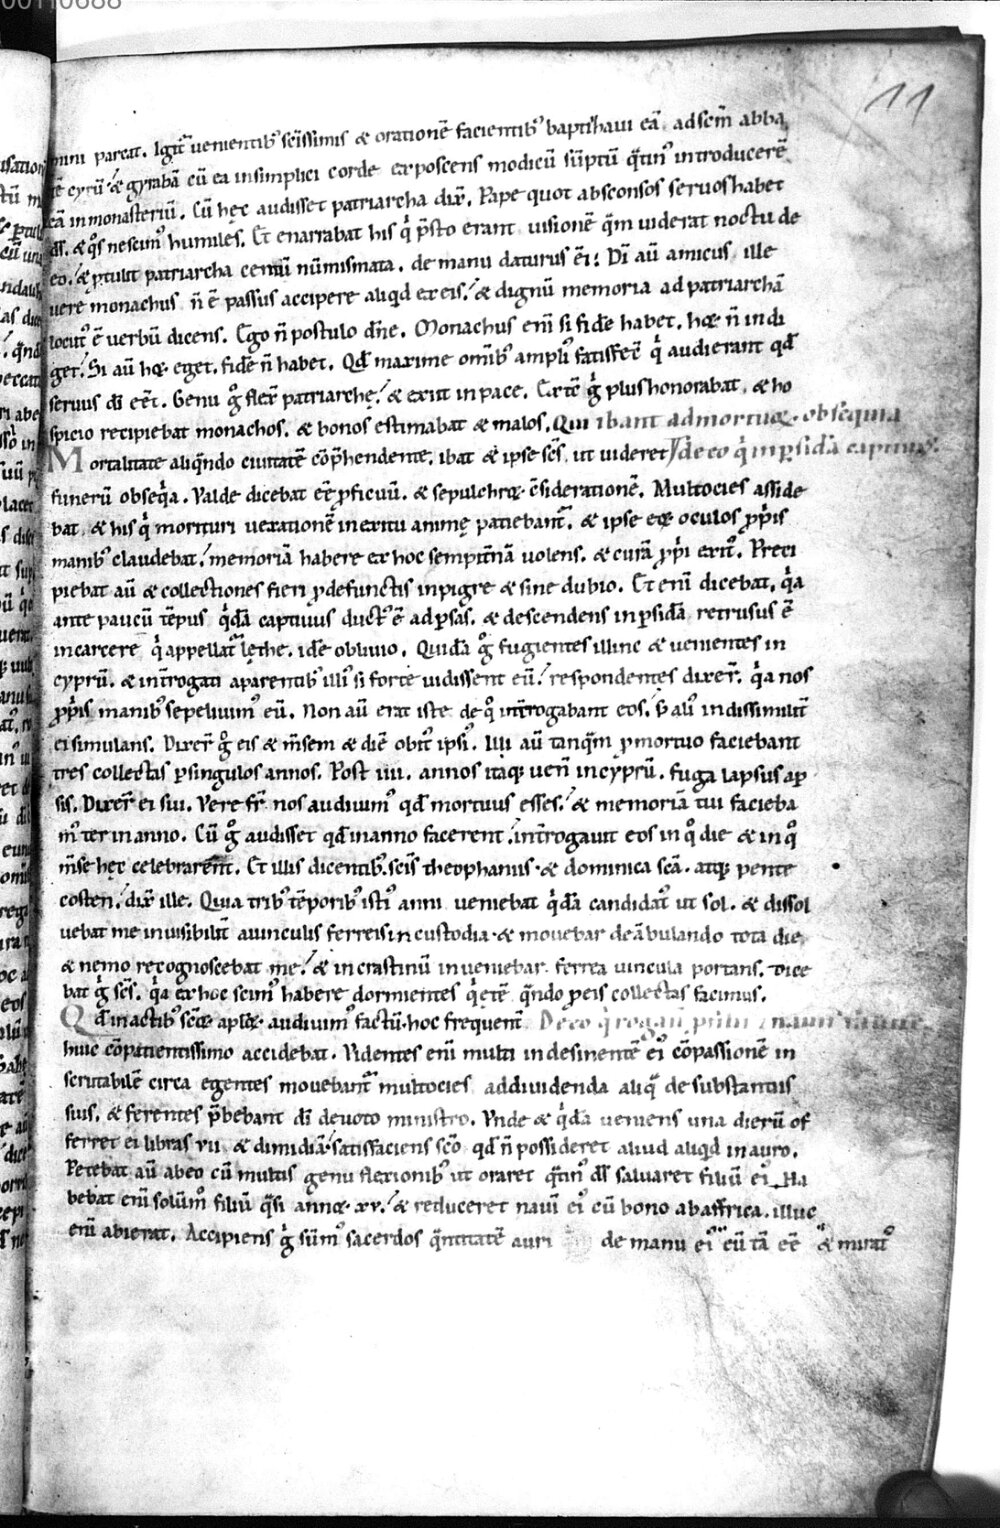 11
mini pareat. Igit᷑ uenientib᷒ sc̄issimis & orationē facientib᷒ baptizhaui eā ad sc̄m abba
tē cyrū. & gyrabā cū ea insimplici corde exposcens modicū sūptū q̄tin᷒ introducerē
eā in monasteriū. Cū hęc audisset patriarcha dix̄. Pape quot absconsos seruos habet
d̄s. & q̊s nescim᷒ humiles. Et enarrabat his q̇ p̄sto erant uisionē q̄m uiderat noctu de
eo. & ꝓtulit patriarcha centū nūmismata. de manu daturus ei. Dī aū amicus ille
uere monachus n̄ ē passus accipere aliqd ex eis. & dignū memoria ad patriarchā
locut᷒ ē uerbū dicens. Ego n̄ postulo dn̄e. Monachus eni᷒ si fidē habet. hoc n̄ indi
get. Si aū hoc eget. fidē n̄ habet. Qd̄ maxime omib᷒ ampli᷒ satisfec̄ q̇ audierant qd̄
seruus dī eēt. Genu g̊ flex̄ patriarchę. & exiit in pace. Ex tē g̊ plus honorabat. & ho
spicio recipiebat monachos. & bonos estimabat & malos. Qui ibant ad mortuoꝝ. obsequia
Mortalitate aliqn̄do ciuitatē cōp̄hendente. ibat & ipse sc̄s. ut uideret de eo q̇ in ꝑsida captiuus.
funerū obseq̇a. Valde dicebat eē ꝓficuū. & sepulchroꝝ c̄siderationē. Multocies asside
bat & his q̇ morituri uexationē in exitu animę patiebant᷑. & ipse eoꝝ oculos ꝓp̄is
manib᷒ claudebat. memoriā habere ex hoc sempit̄nā uolens. & curā ꝓp̄i exit᷒. Preci
piebat aū & collectiones fieri ꝓ defunctis inpigre & sine dubio. Et eni᷒ dicebat. q̇a
ante paucū tēpus q̇dā captiuus duct᷒ ē ad ꝑsas. & descendens in ꝑsidā retrusus ē
in carcere q̇ appellat᷑ lęthe. idē obliuio. Quidā g̊ fugientes illinc & uenientes in
cyprū. & int̄rogati a parentib᷒ illi᷒ si forte uidissent eū. respondentes dixer̄. q̇a nos
ꝓp̄is manib᷒ sepeliuim᷒ eū. Non aū erat iste de q̊ int̄rogabant eos. sꝫ ali᷒ indissimilit̄
ei simulans. Dixer̄ g̊ eis & m̄sem & diē obit᷒ ipsi᷒. Illi aū tanq̄m ꝓ mortuo faciebant
tres collectas ꝑ singulos annos. Post iiii. annos itaqꝫ uen̄ in cyprū. fuga lapsus a ꝑ
sis. Dixer̄ ei sui. Vere fr̄ nos audiuim᷒ qd̄ mortuus esses. & memoriā tui facieba
m᷒ ter in anno. Cū g̊ audisset qd̄ in anno facerent. int̄rogauit eos in q̊ die & in q̊
m̄se hęc celebrarent. Et illis dicentib᷒. sc̄is theophaniis. & dominica sc̄a. atqꝫ pente
costen. dix̄ ille. Quia trib᷒ tēporib᷒ isti᷒ anni ueniebat q̇dā candidat᷒ ut sol. & dissol
uebat me inuisibilit̄ a uinculis ferreis in custodia. & mouebar deābulando tota die
& nemo recognoscebat me. & in crastinū inueniebar ferrea uincula portans. Dice
bat g̊ sc̄s. q̇a ex hoc scim᷒ habere dormientes q̇etē qn̄do ꝓ eis collectas facimus.
Qd̄ in actib᷒ sc̄oꝝ aploꝝ. audiuim᷒ factū. hoc frequent̄ De eo q̇ rogau᷑
huic cōpatientissimo accidebat. Videntes eni᷒ multi indesinentē ei᷒ cōpassionē in
scrutabilē circa egentes mouebant᷑ multocies ad diuidenda aliq̄ de substantiis
suis. & ferentes p̄bebant dī deuoto ministro. Vnde & q̇dā ueniens una dierū of
ferret ei libras vii. & dimidiā. satisfaciens sc̄o qd̄ n̄ possideret aliud aliqd in auro.
Petebat aū ab eo cū multis genu flexionib᷒ ut oraret q̄tin᷒ d̄s saluaret filiū ei᷒. Ha
bebat eni᷒ solūm᷒ filiū q̄si annoꝝ. xv. & reduceret nauī ei᷒ cū bono ab affrica. illuc
eni᷒ abierat. Accipiens g̊ sūm᷒ sacerdos q̄ntitatē auri de manu ei᷒ cū tā eē & mirat᷒